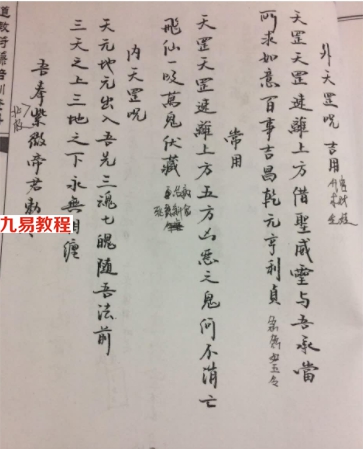 外天罡咒 吉用
天罡天罡速離上方借聖威靈与吾承當
所求如意百事吉昌乾元亨利貞
常用
天罡天罡速離上方五方凶惡之鬼何不消亡
飛仙一吸萬鬼伏藏
内天罡咒
天元地元出入吾先三魂七魄隨吾法前
三天之上三地之下永無 纏
吾奉紫微帝君勅
九易教程